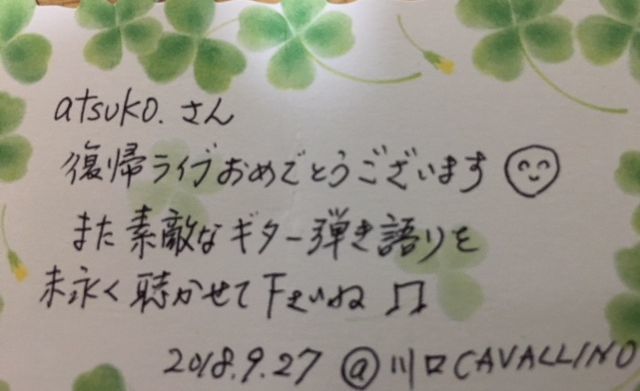 atsuko.さん
復帰ライブおめでとうございます
また素敵なギター弾き語りを
末永く聴かせて下さいね ♫
2018.9.27 @川口CAVALLINO